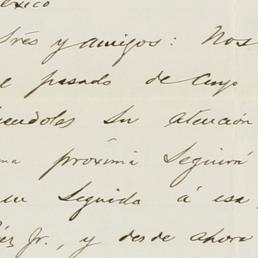 éxico
stres y amigos: Nos
e pasado de cuyo
iendoles su atención
ma próxima seguirá
en seguida á esa
Jr., y desde ahora